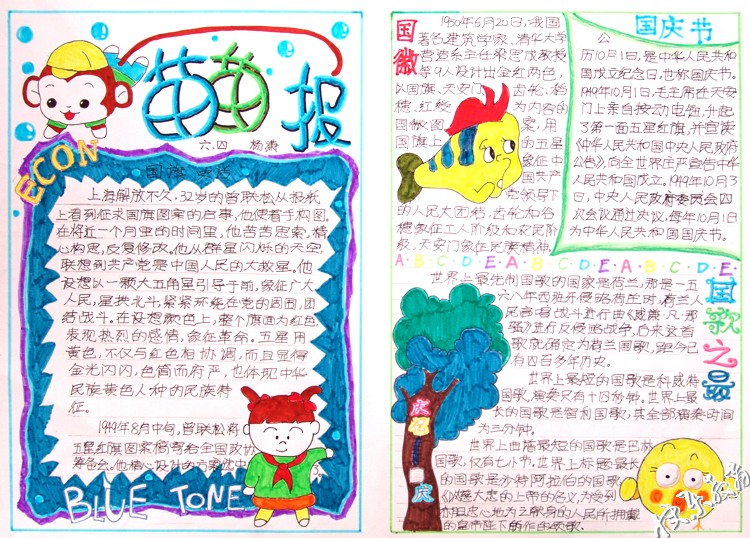 苗苗报
六.四 杨清
国旗史话
ECON
上海解放不久,32岁的曾联松从报纸
上看到征求国旗图案的启事,他便着手构图。
在将近一个月里的时间里,他苦苦思索,精
心构思,反复修改。他从群星闪烁的天空,
联想到共产党是中国人民的大救星。他
设想以一颗大五角星引导于前,象征广大
人民,星拱北斗,紧紧环绕在党的周围,团
结战斗。在设想颜色上,整个旗面为红色,
表现热烈的感情,象征革命。五星用
黄色,不仅与红色相协调,而且显得
金光闪闪,色简而府严,也体现中华
民族黄色人种的民族特
征。
1949年8月中旬,曾联松将
五星红旗图案稿寄给全国政协
筹备会。他精心设计的方案选中
BLUE TONE
国徽
1950年6月20日,我国
著名建筑学家、清华大学
营造系主任梁思成教授
等9人设计出金红两色,
以国旗、天安门、齿轮、稻
穗、红绶为内容的
国徽图案,用
国旗上的五星
象征中
国共产
党领导下
的人民大团结,齿轮和谷
穗象征工人阶级和农民阶
级,天安门象征民族精神。
国庆节
公
历10月1日,是中华人民共和
国成立纪念日,也称国庆节。
1949年10月1日,毛主席在天安
门上亲自按动电钮,升起
了第一面五星红旗,并宣读
《中华人民共和国中央人民政府
公告》,向全世界庄严宣告中华
人民共和国成立。1949年10月3
日,中央人民政府委员会四
次会议通过决议,每年10月1日
为中华人民共和国国庆节。
A·B·C·D·E·A·B·C·D·E·A·B·C·D·E
国歌之最
世界上最先制国歌的国家是荷兰,那是一五
六八年西班牙侵略荷兰时,荷兰人
民高唱战斗进行曲《威廉·凡·那
骚》进行反侵略战争,后来这首
歌就确定为荷兰国歌,距今已
有四百多年历史。
世界上最短的国歌是科威特
国歌,演奏只有十四秒钟。世界上最
长的国歌是智利国歌,其全部演奏时间
为三分钟。
世界上曲谱最短的国歌是巴林
国歌,仅有七小节。世界上标题最长
的国歌是沙特阿拉伯的国歌
《以慈大悲的上帝的名义,为受到
亦胆忠心地为之献身的人民所拥戴
的皇帝陛下的作的颂歌。
庆祝
国庆